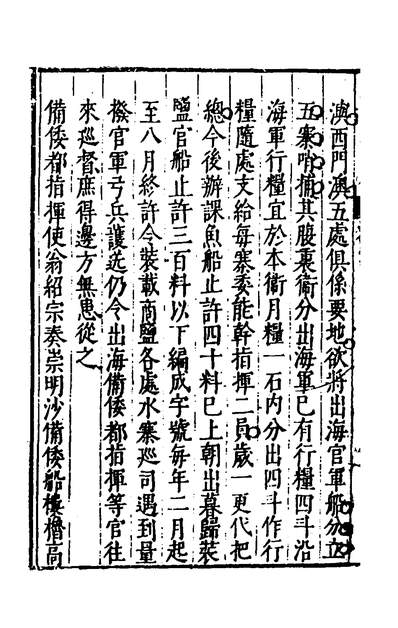 澳西門澳五處俱係要地欲將出海官軍船分立
五寨哨捕其腹裏衛分出海軍已有行糧四斗沿
海軍行糧宜於本衛月糧一石内分出四斗作行
糧隨處支給每寨委能幹指揮二員歲一更代把
總今後辦課魚船止許四十料已上朝出暮歸裝
鹽官船止許三百料以下編成字號每年二月起
至八月終許令裝載商鹽各處水寨巡司遇到量
撥官軍弓兵護送仍令出海備倭都指揮等官往
來巡督庶得邊方無患從之
備倭都指揮使翁紹宗奏崇明沙備倭船樓櫓高